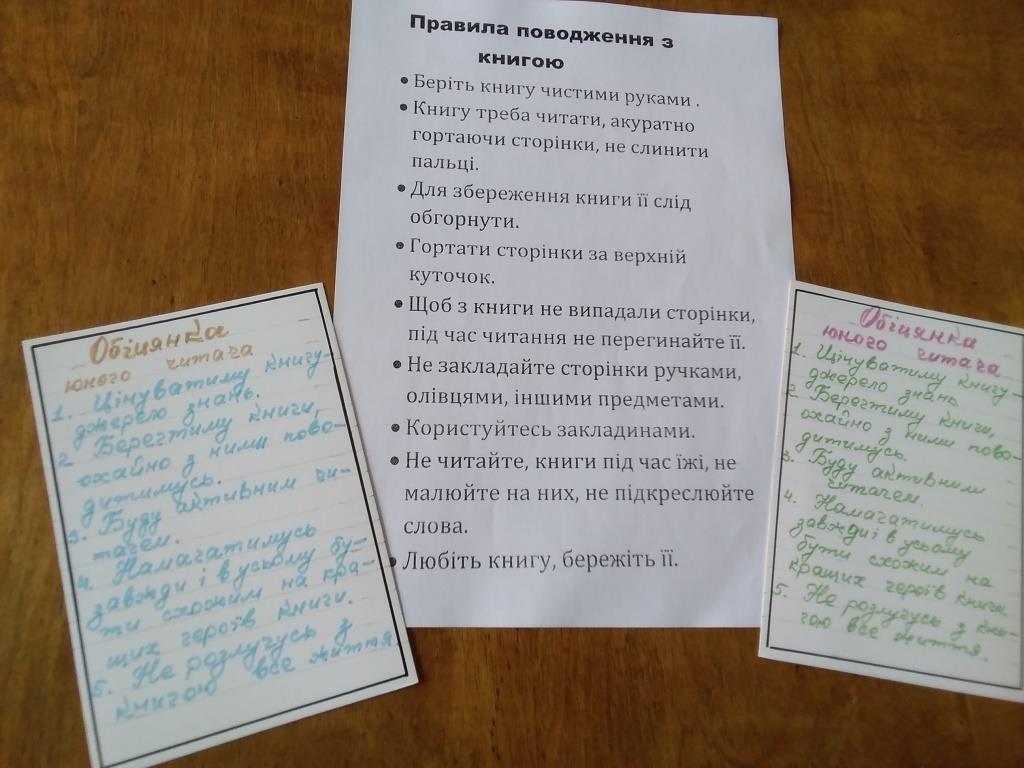 Правила поводження з
книгою
• Беріть книгу чистими руками .
• Книгу треба читати, акуратно
гортаючи сторінки, не слинити
пальці.
• Для збереження книги її слід
обгорнути.
• Гортати сторінки за верхній
куточок.
• Щоб з книги не випадали сторінки,
під час читання не перегинайте її.
• Не закладайте сторінки ручками,
олівцями, іншими предметами.
• Користуйтесь закладинами.
• Не читайте, книги під час їжі, не
малюйте на них, не підкреслюйте
слова.
• Любіть книгу, бережіть її.
Обіцянка
юного читача
1. Цінуватиму книгу-
джерело знань.
2. Берегтиму книги,
охайно з ними пово-
дитимусь.
3. Буду активним чи-
тачем.
4. Намагатимусь
завжди і в усьому бу-
ти схожим на кра-
щих героїв книги.
5. Не розлучусь з
книгою все життя
Обіцянка
юного читача
1. Цінуватиму книгу-
джерело знань
2. Берегтиму книги,
охайно з ними пово-
дитимусь.
3. Буду активним
читачем.
4. Намагатимусь
завжди і в усьому
бути схожим на
кращих героїв книги.
5. Не розлучусь з кни-
гою все життя.